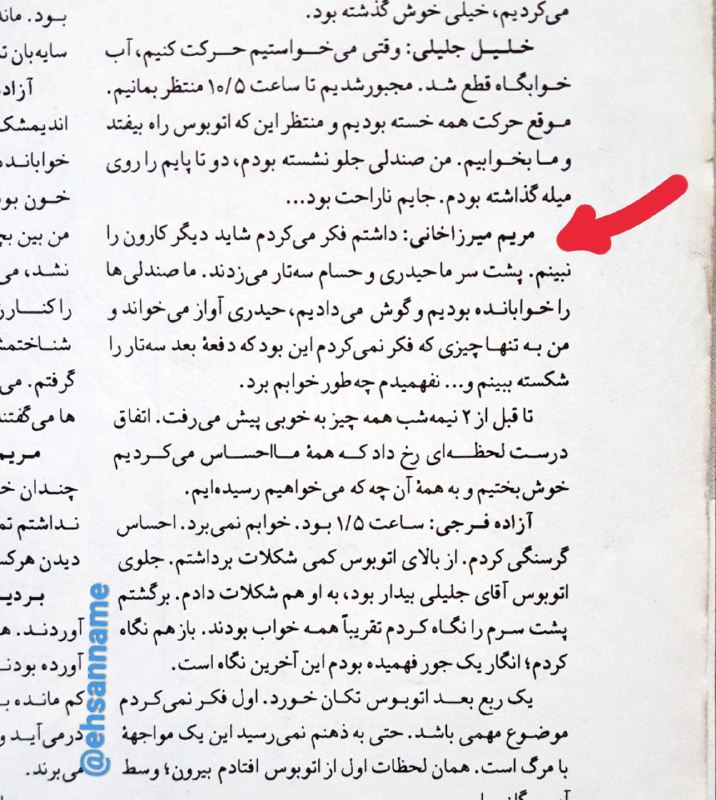 می‌کردیم، خیلی خوش گذشته بود.
خلیل جلیلی: وقتی می‌خواستیم حرکت کنیم، آب
خوابگاه قطع شد. مجبور شدیم تا ساعت ۱۰/۵ منتظر بمانیم.
موقع حرکت همه خسته بودیم و منتظر این که اتوبوس راه بیفتد
و ما بخوابیم. من صندلی جلو نشسته بودم، دو تا پایم را روی
میله گذاشته بودم. جایم ناراحت بود...
مریم میرزاخانی: داشتم فکر می‌کردم شاید دیگر کارون را
نبینم. پشت سر ما حیدری و حسام سه‌تار می‌زدند. ما صندلی‌ها
را خوابانده بودیم و گوش می‌دادیم، حیدری آواز می‌خواند و
من به تنها چیزی که فکر نمی‌کردم این بود که دفعهٔ بعد سه‌تار را
شکسته ببینم و... نفهمیدم چه‌طور خوابم برد.
تا قبل از ۲ نیمه‌شب همه چیز به خوبی پیش می‌رفت. اتفاق
درست لحظه‌ای رخ داد که همهٔ ما احساس می‌کردیم
خوش‌بختیم و به همهٔ آن چه که می‌خواهیم رسیده‌ایم.
آزاده فرجی: ساعت ۱/۵ بود. خوابم نمی‌برد. احساس
گرسنگی کردم. از بالای اتوبوس کمی شکلات برداشتم. جلوی
اتوبوس آقای جلیلی بیدار بود، به او هم شکلات دادم. برگشتم
پشت سرم را نگاه کردم تقریباً همه خواب بودند. باز هم نگاه
کردم؛ انگار یک جور فهمیده بودم این آخرین نگاه است.
یک ربع بعد اتوبوس تکان خورد. اول فکر نمی‌کردم
موضوع مهمی باشد. حتی به ذهنم نمی‌رسید این یک مواجههٔ
با مرگ است. همان لحظات اول از اتوبوس افتادم بیرون؛ وسط
بود.
سایه‌بان
اندیمشک
خون بود
من بین
نشد،
را کنار
گرفتم.
ها می‌گفتند
مریم
چندان
نداشتم
دیدن هرکس
آوردند.
آورده بودند
کم مانده
درمی‌آید و
می‌برند.
@ehsanname